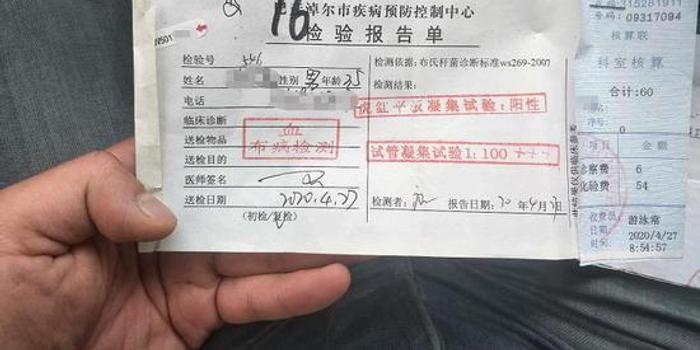 16
巴彦淖尔市疾病预防控制中心
检验报告单
检验号
姓名 性别 男 年龄 35
电话
临床诊断
送检物品 血
布病检测
送检目的
医师签名
送检日期 2020.4.27
(初检/复检)
检测依据:布氏杆菌诊断标准ws269-2007
检测结果:
虎红平板凝集试验:阳性
试管凝集试验1:100+++
检测者: 报告日期:20年4月
315281911
号码:09317094
核算联
科室核算
合计:60
序号:
0
项目 金额
诊察费 6
化验费 54
收费员 游泳常
日期: 2020/4/27
时间: 8:54:57